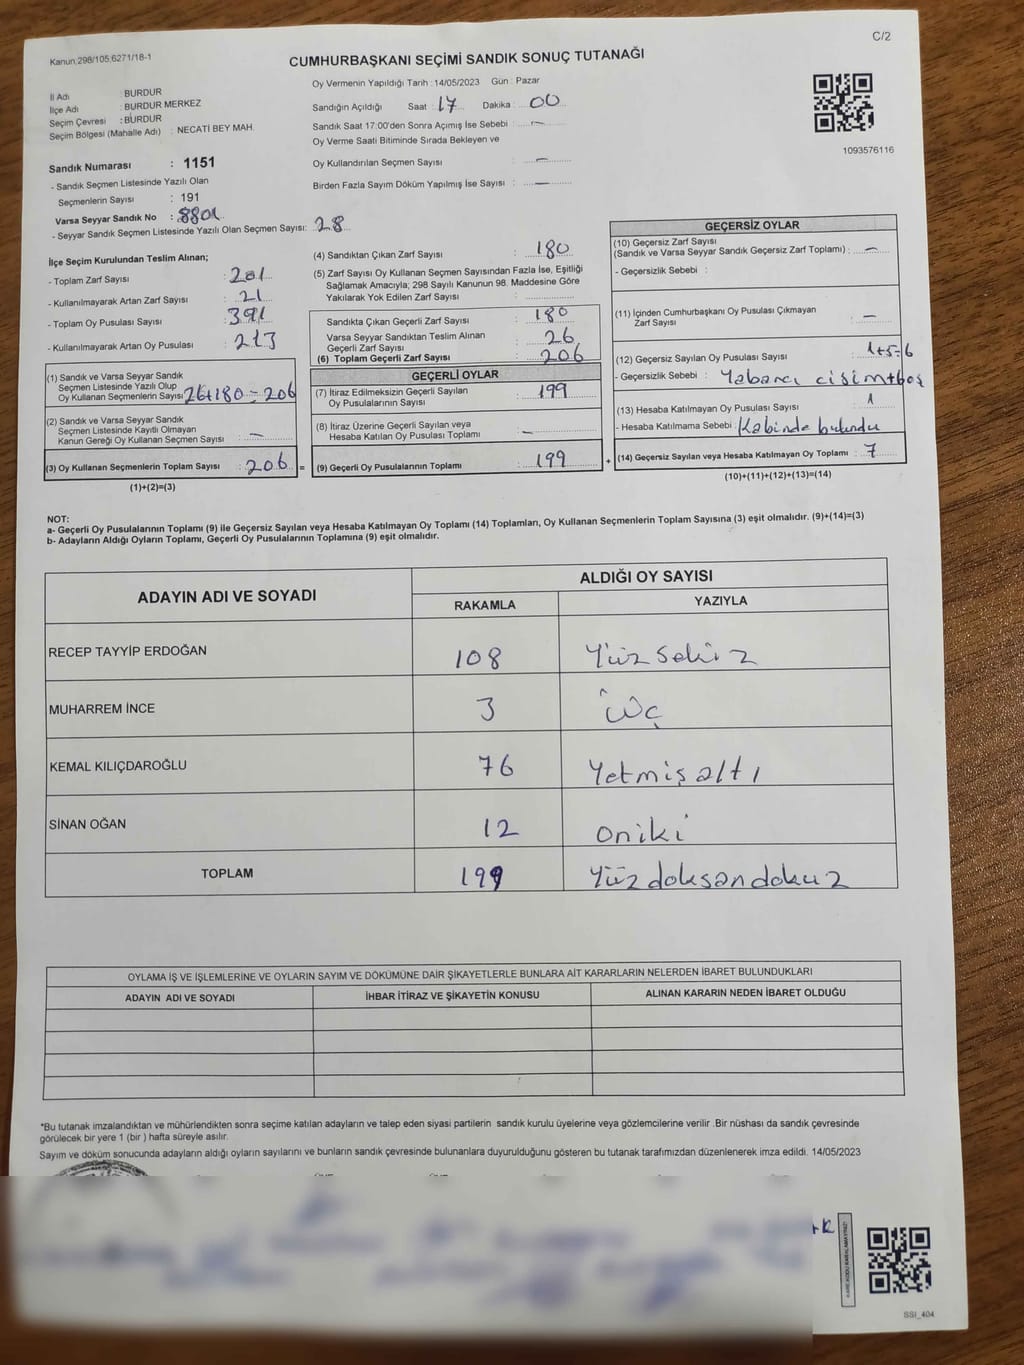 C/2
Kanun.298/105.6271/18-1
CUMHURBAŞKANI SEÇİMİ SANDIK SONUÇ TUTANAĞI
İl Adı : BURDUR
İlçe Adı : BURDUR MERKEZ
Seçim Çevresi : BURDUR
Seçim Bölgesi (Mahalle Adı) : NECATİ BEY MAH.
Sandık Numarası : 1151
- Sandık Seçmen Listesinde Yazılı Olan
Seçmenlerin Sayısı : 191
Varsa Seyyar Sandık No : 8801
- Seyyar Sandık Seçmen Listesinde Yazılı Olan Seçmen Sayısı: 28
Oy Vermenin Yapıldığı Tarih : 14/05/2023 Gün : Pazar
Sandığın Açıldığı Saat : 17 Dakika : 00
Sandık Saat 17:00'den Sonra Açımış İse Sebebi : —
Oy Verme Saati Bitiminde Sırada Bekleyen ve
Oy Kullandırılan Seçmen Sayısı : —
Birden Fazla Sayım Döküm Yapılmış İse Sayısı : —
1093576116
İlçe Seçim Kurulundan Teslim Alınan;
- Toplam Zarf Sayısı : 201
- Kullanılmayarak Artan Zarf Sayısı : 21
- Toplam Oy Pusulası Sayısı : 391
- Kullanılmayarak Artan Oy Pusulası : 213
(1) Sandık ve Varsa Seyyar Sandık
Seçmen Listesinde Yazılı Olup
Oy Kullanan Seçmenlerin Sayısı : 26+180=206
(2) Sandık ve Varsa Seyyar Sandık
Seçmen Listesinde Kayıtlı Olmayan
Kanun Gereği Oy Kullanan Seçmen Sayısı : —
(3) Oy Kullanan Seçmenlerin Toplam Sayısı : 206 =
(1)+(2)=(3)
(4) Sandıktan Çıkan Zarf Sayısı : 180
(5) Zarf Sayısı Oy Kullanan Seçmen Sayısından Fazla İse, Eşitliği
Sağlamak Amacıyla; 298 Sayılı Kanunun 98. Maddesine Göre
Yakılarak Yok Edilen Zarf Sayısı :
Sandıkta Çıkan Geçerli Zarf Sayısı : 180
Varsa Seyyar Sandıktan Teslim Alınan
Geçerli Zarf Sayısı : 26
(6) Toplam Geçerli Zarf Sayısı : 206
GEÇERLİ OYLAR
(7) İtiraz Edilmeksizin Geçerli Sayılan
Oy Pusulalarının Sayısı : 199
(8) İtiraz Üzerine Geçerli Sayılan veya
Hesaba Katılan Oy Pusulası Toplamı : —
(9) Geçerli Oy Pusulalarının Toplamı : 199 +
GEÇERSİZ OYLAR
(10) Geçersiz Zarf Sayısı
(Sandık ve Varsa Seyyar Sandık Geçersiz Zarf Toplamı) : —
- Geçersizlik Sebebi :
(11) İçinden Cumhurbaşkanı Oy Pusulası Çıkmayan
Zarf Sayısı : —
(12) Geçersiz Sayılan Oy Pusulası Sayısı : 1+5=6
- Geçersizlik Sebebi : Yabancı cisim+boş
(13) Hesaba Katılmayan Oy Pusulası Sayısı : 1
- Hesaba Katılmama Sebebi : Kabinde bulundu
(14) Geçersiz Sayılan veya Hesaba Katılmayan Oy Toplamı : 7
(10)+(11)+(12)+(13)=(14)
NOT:
a- Geçerli Oy Pusulalarının Toplamı (9) ile Geçersiz Sayılan veya Hesaba Katılmayan Oy Toplamı (14) Toplamları, Oy Kullanan Seçmenlerin Toplam Sayısına (3) eşit olmalıdır. (9)+(14)=(3)
b- Adayların Aldığı Oyların Toplamı, Geçerli Oy Pusulalarının Toplamına (9) eşit olmalıdır.
ADAYIN ADI VE SOYADI
ALDIĞI OY SAYISI
RAKAMLA YAZIYLA
RECEP TAYYİP ERDOĞAN 108 Yüz sekiz
MUHARREM İNCE 3 üç
KEMAL KILIÇDAROĞLU 76 Yetmiş altı
SİNAN OĞAN 12 oniki
TOPLAM 199 Yüz doksan dokuz
OYLAMA İŞ VE İŞLEMLERİNE VE OYLARIN SAYIM VE DÖKÜMÜNE DAİR ŞİKAYETLERLE BUNLARA AİT KARARLARIN NELERDEN İBARET BULUNDUKLARI
ADAYIN ADI VE SOYADI İHBAR İTİRAZ VE ŞİKAYETİN KONUSU ALINAN KARARIN NEDEN İBARET OLDUĞU
*Bu tutanak imzalandıktan ve mühürlendikten sonra seçime katılan adayların ve talep eden siyasi partilerin sandık kurulu üyelerine veya gözlemcilerine verilir .Bir nüshası da sandık çevresinde
görülecek bir yere 1 (bir ) hafta süreyle asılır.
Sayım ve döküm sonucunda adayların aldığı oyların sayılarını ve bunların sandık çevresinde bulunanlara duyurulduğunu gösteren bu tutanak tarafımızdan düzenlenerek imza edildi. 14/05/2023
SSI_404